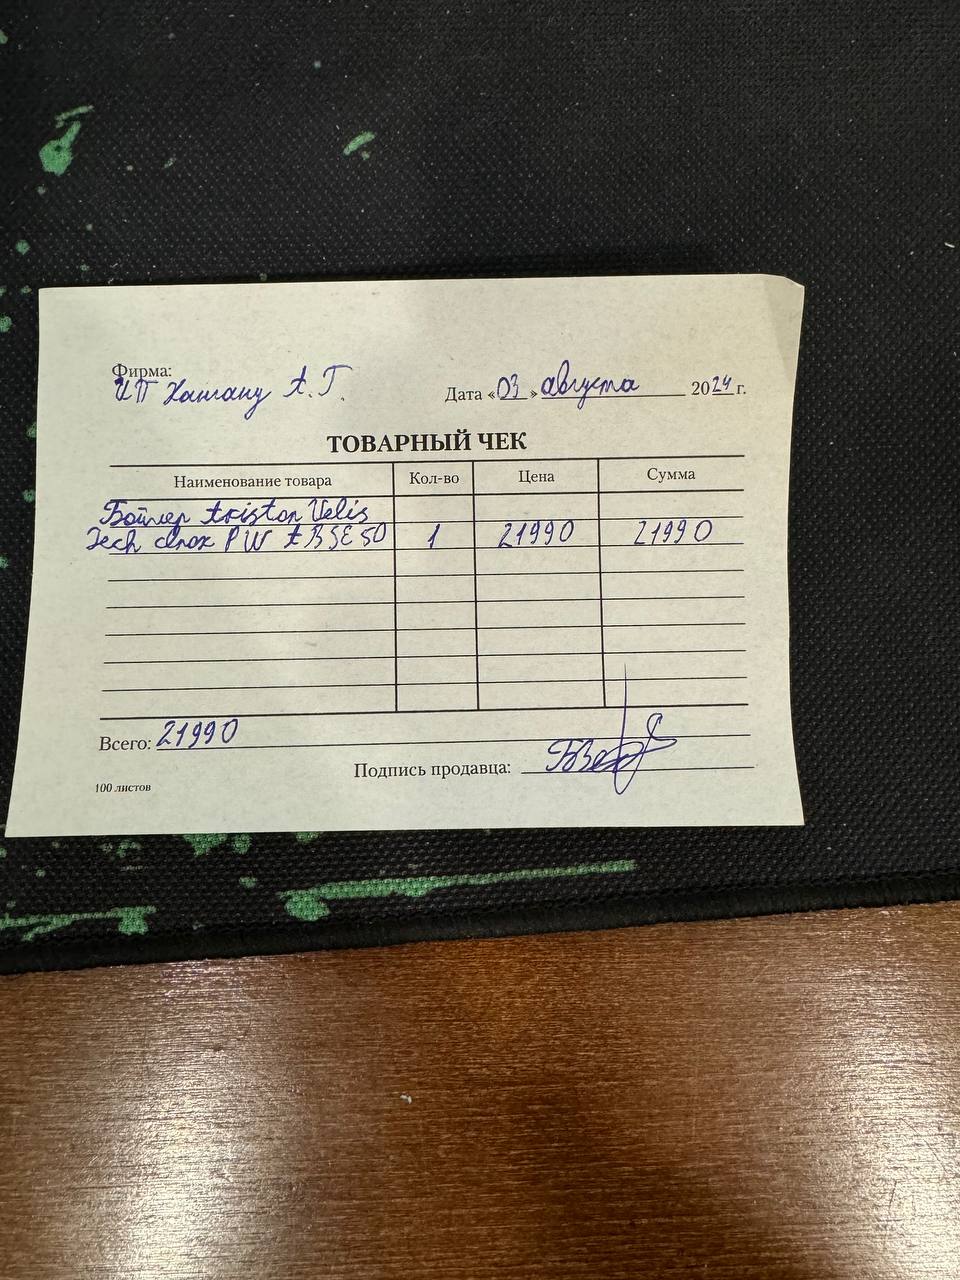 Фирма:
ИП Хатану А. Г.
Дата «03» августа 2024 г.
ТОВАРНЫЙ ЧЕК
Наименование товара Кол-во Цена Сумма
Бойлер Ariston Velis
Tech inox PW ABSE 50 1 21990 21990
Всего: 21990
Подпись продавца:
100 листов